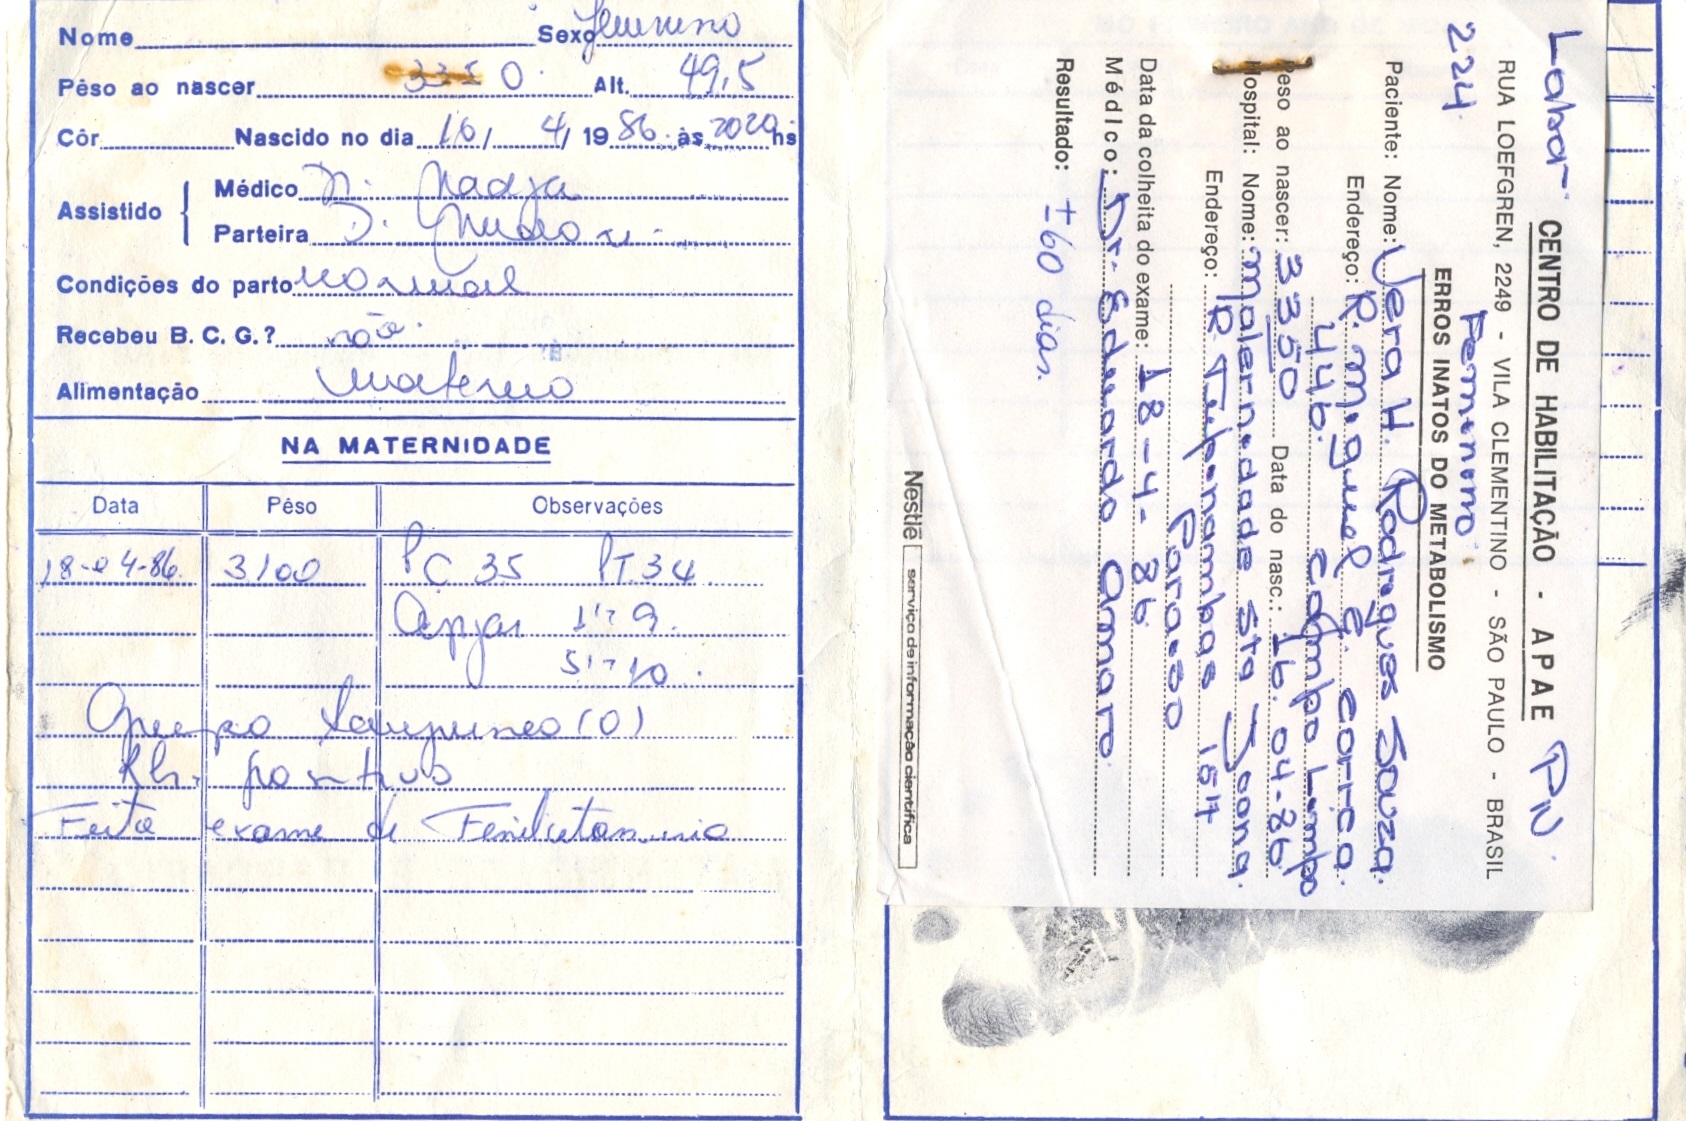 Nome Sexo feminino
Pêso ao nascer 3350 Alt. 49,5
Côr Nascido no dia 16/ 4/ 1986 às 2020 hs
Assistido
Médico D. Nadja
Parteira D.
Condições do parto normal
Recebeu B. C. G.? não
Alimentação materno
NA MATERNIDADE
Data Pêso Observações
18-04-86 3100 PC 35 PT.34
Apgar 1'- 9.
5'- 10.
Grupo Sanguineo (O)
Rh: positivo
Feito exame de Fenilcetonuria
Labor CENTRO DE HABILITAÇÃO - APAE PN
RUA LOEFGREN, 2249 - VILA CLEMENTINO - SÃO PAULO - BRASIL
224 Feminino
ERROS INATOS DO METABOLISMO
Paciente: Nome: Vera H. Rodrigues Souza.
Endereço: R. Miguel
446. Campo Limpo
Peso ao nascer: 3350 Data do nasc.: 16.04-86
Hospital: Nome: Maternidade Sta Joana.
Endereço: R. Tupinambas
Paraiso
Data da colheita do exame: 18-4-86
Médico: Dr. Eduardo Amaro
Resultado: ±60 dias.
Nestlé serviço de informação científica